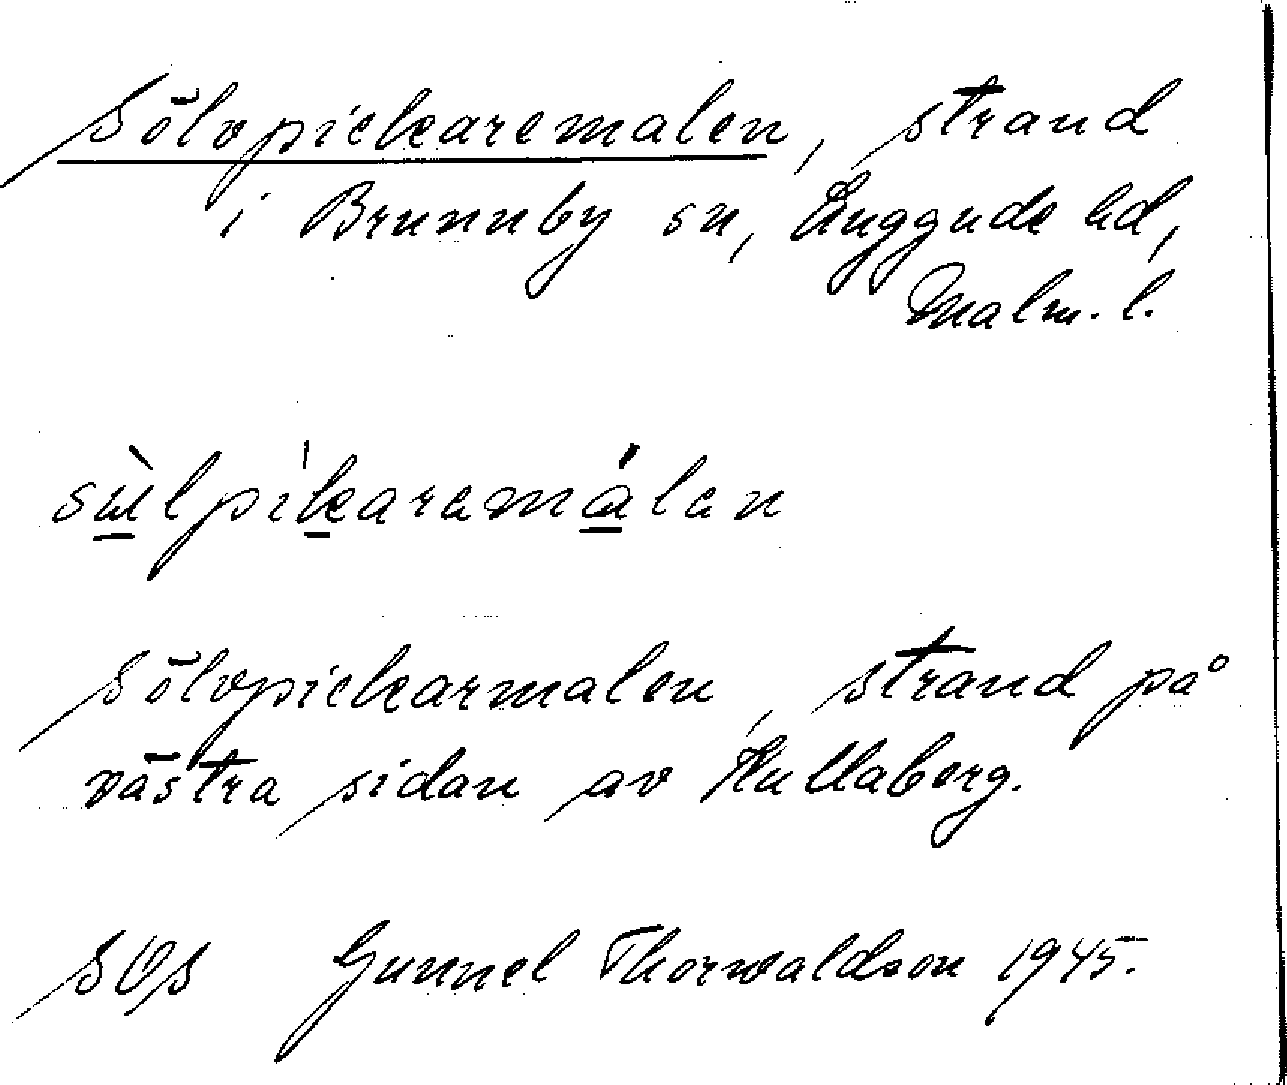 Sölvpickaremalen, strand
i Brunnby sn, Luggude hd,
Malm. l.
sùlpìkaremálen
Sölvpickarmalen, strand på
västra sidan av Kullaberg.
SOS Gunnel Thorwaldson 1945.